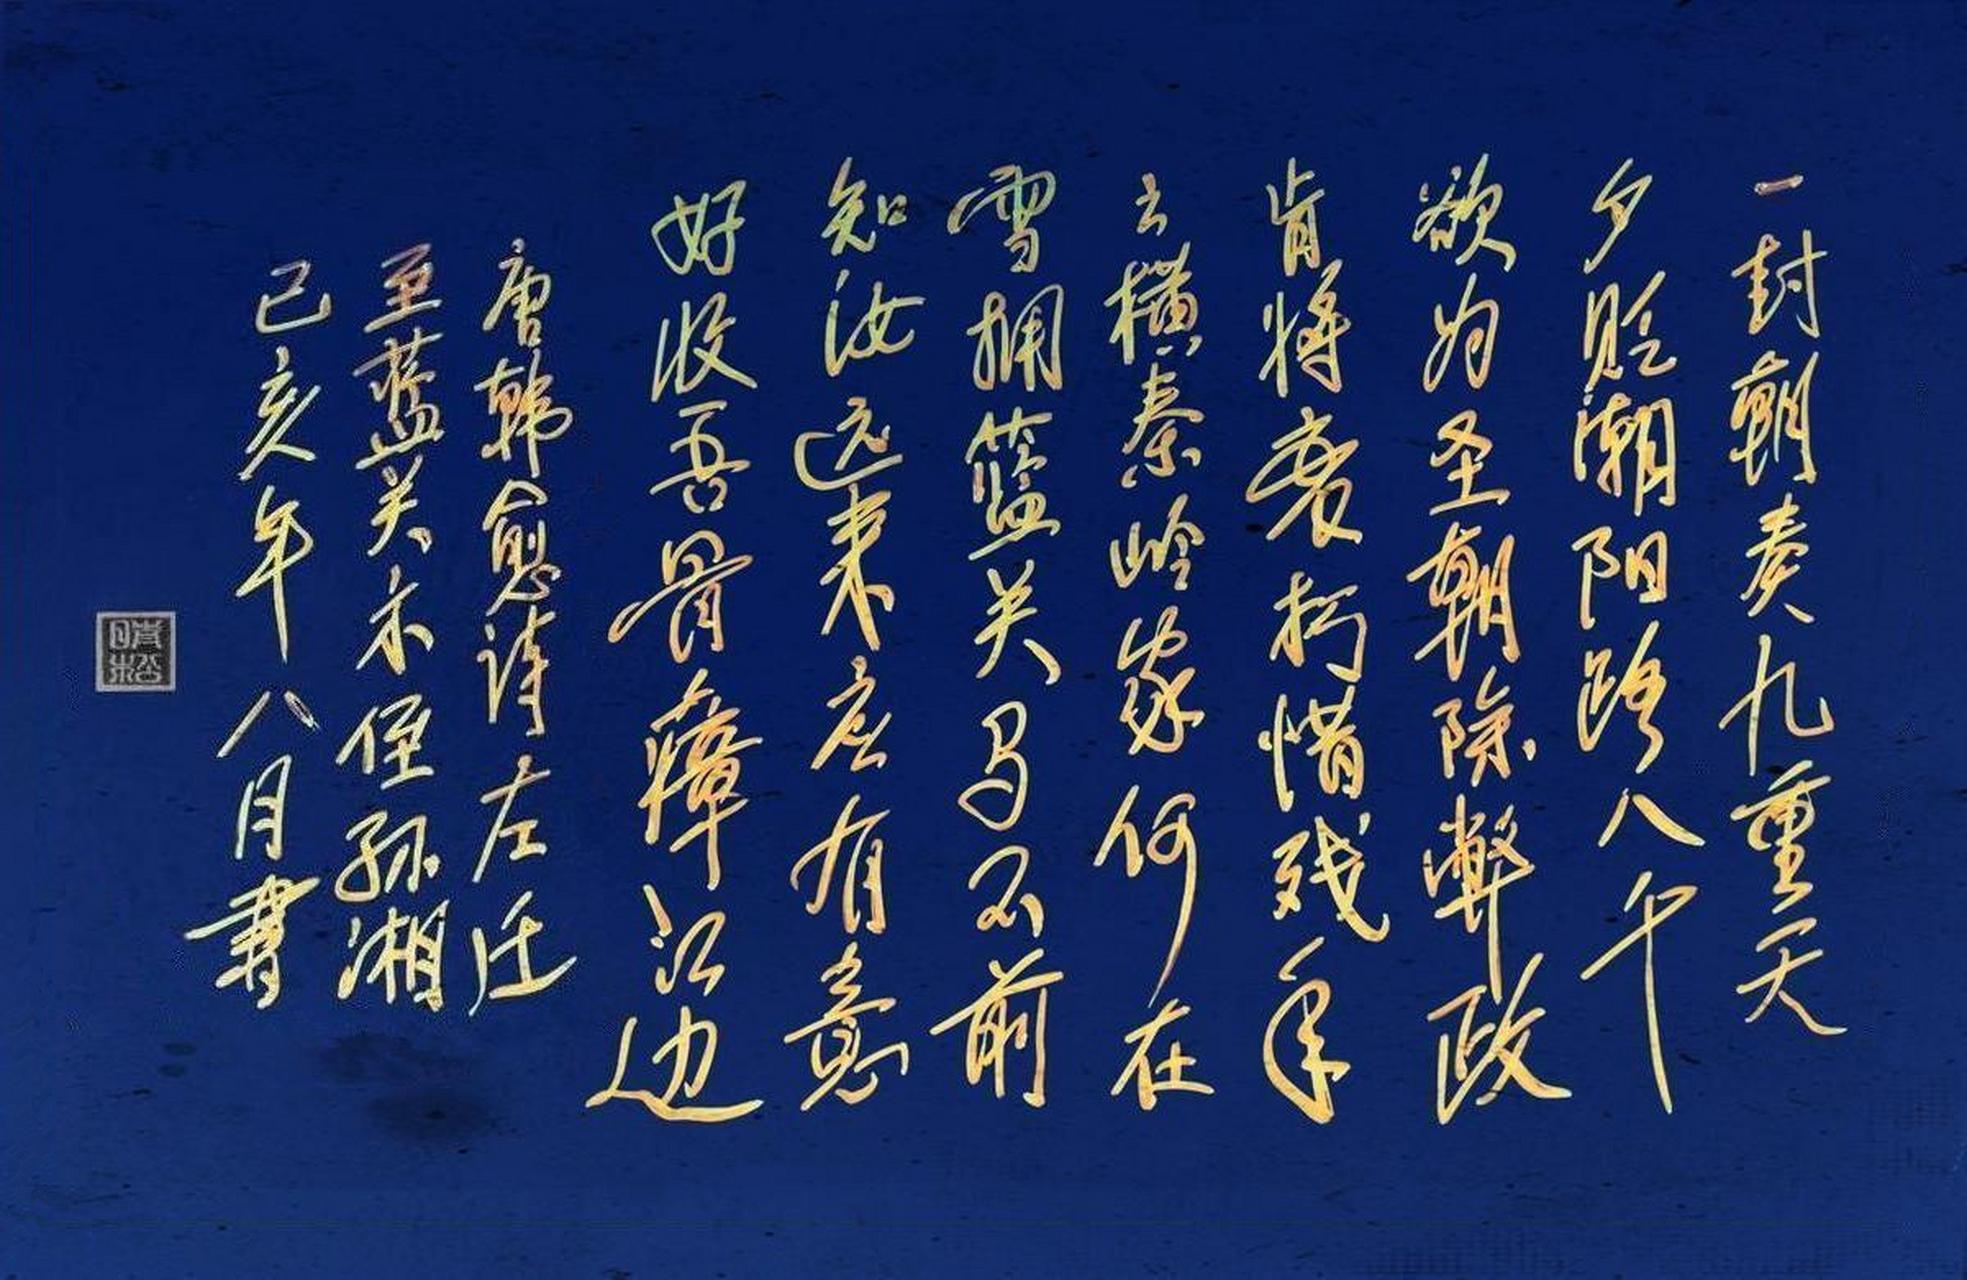 一封朝奏九重天
夕贬潮阳路八千
欲为圣朝除弊政
肯将衰朽惜残年
云横秦岭家何在
雪拥篮关马不前
知汝远来应有意
好收吾骨瘴江边
唐韩愈诗左迁
至蓝关示侄孙湘
己亥年八月书